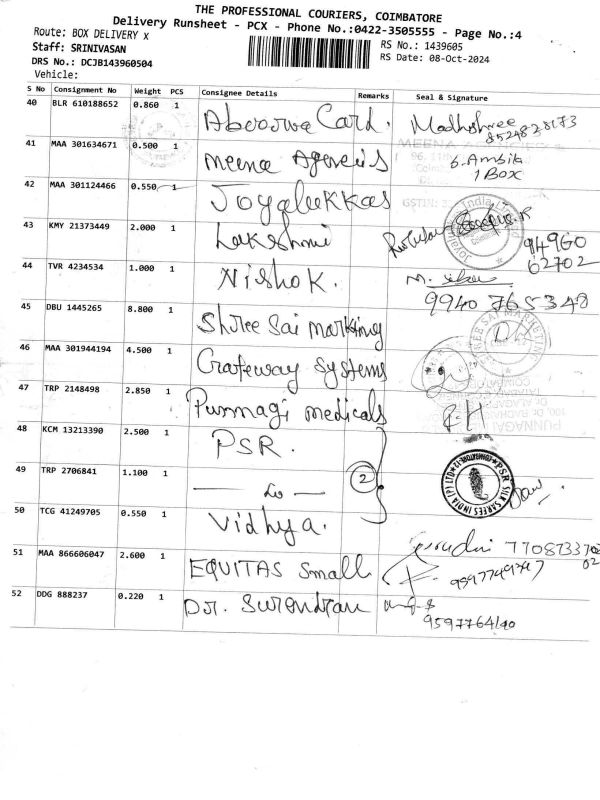 THE PROFESSIONAL COURIERS, COIMBATORE
Delivery Runsheet - PCX - Phone No.:0422-3505555 - Page No.:4
Route: BOX DELIVERY X
RS No.: 1439605
Staff: SRINIVASAN
RS Date: 08-Oct-2024
DRS No.: DCJB143960504
Vehicle:
S No Consignment No Weight PCS Consignee Details Remarks Seal & Signature
40 BLR 610188652 0.860 1 Card. Madhshree
8524828173
41 MAA 301634671 0.500 1 Meena Agencies G. Ambika
1 Box
42 MAA 301124466 0.550 1 Joyalukkas
GSTIN: 33
43 KMY 21373449 2.000 1 Lakshmi
94960
62702
44 TVR 4234534 1.000 1 Nishok. M.
9940 765348
45 DBU 1445265 8.800 1 Shree Sai markting
46 MAA 301944194 4.500 1 Gateway Systems
47 TRP 2148498 2.850 1 Punnagi medicals R-H
48 KCM 13213390 2.500 1 PSR.
PSR SILK SAREES INDIA (P) LTD
49 TRP 2706841 1.100 1 — do — 2
50 TCG 41249705 0.550 1 Vidhya.
7708733702
02
51 MAA 866606047 2.600 1 EQUITAS Small
52 DDG 888237 0.220 1 Dr. Surendran